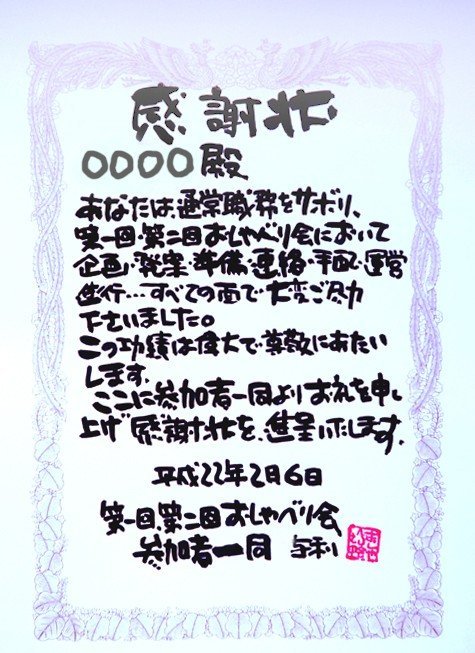 感謝状
〇〇〇〇殿
あなたは通常職務をサボり、
第一回・第二回おしゃべり会において
企画・発案・準備・連絡・手配・運営
進行…すべての面で大変ご尽力
下さいました。
この功績は偉大で尊敬にあたい
します。
ここに参加者一同よりお礼を申し
上げ感謝状を、進呈いたします。
平成22年2月6日
第一回、第二回おしゃべり会
参加者一同